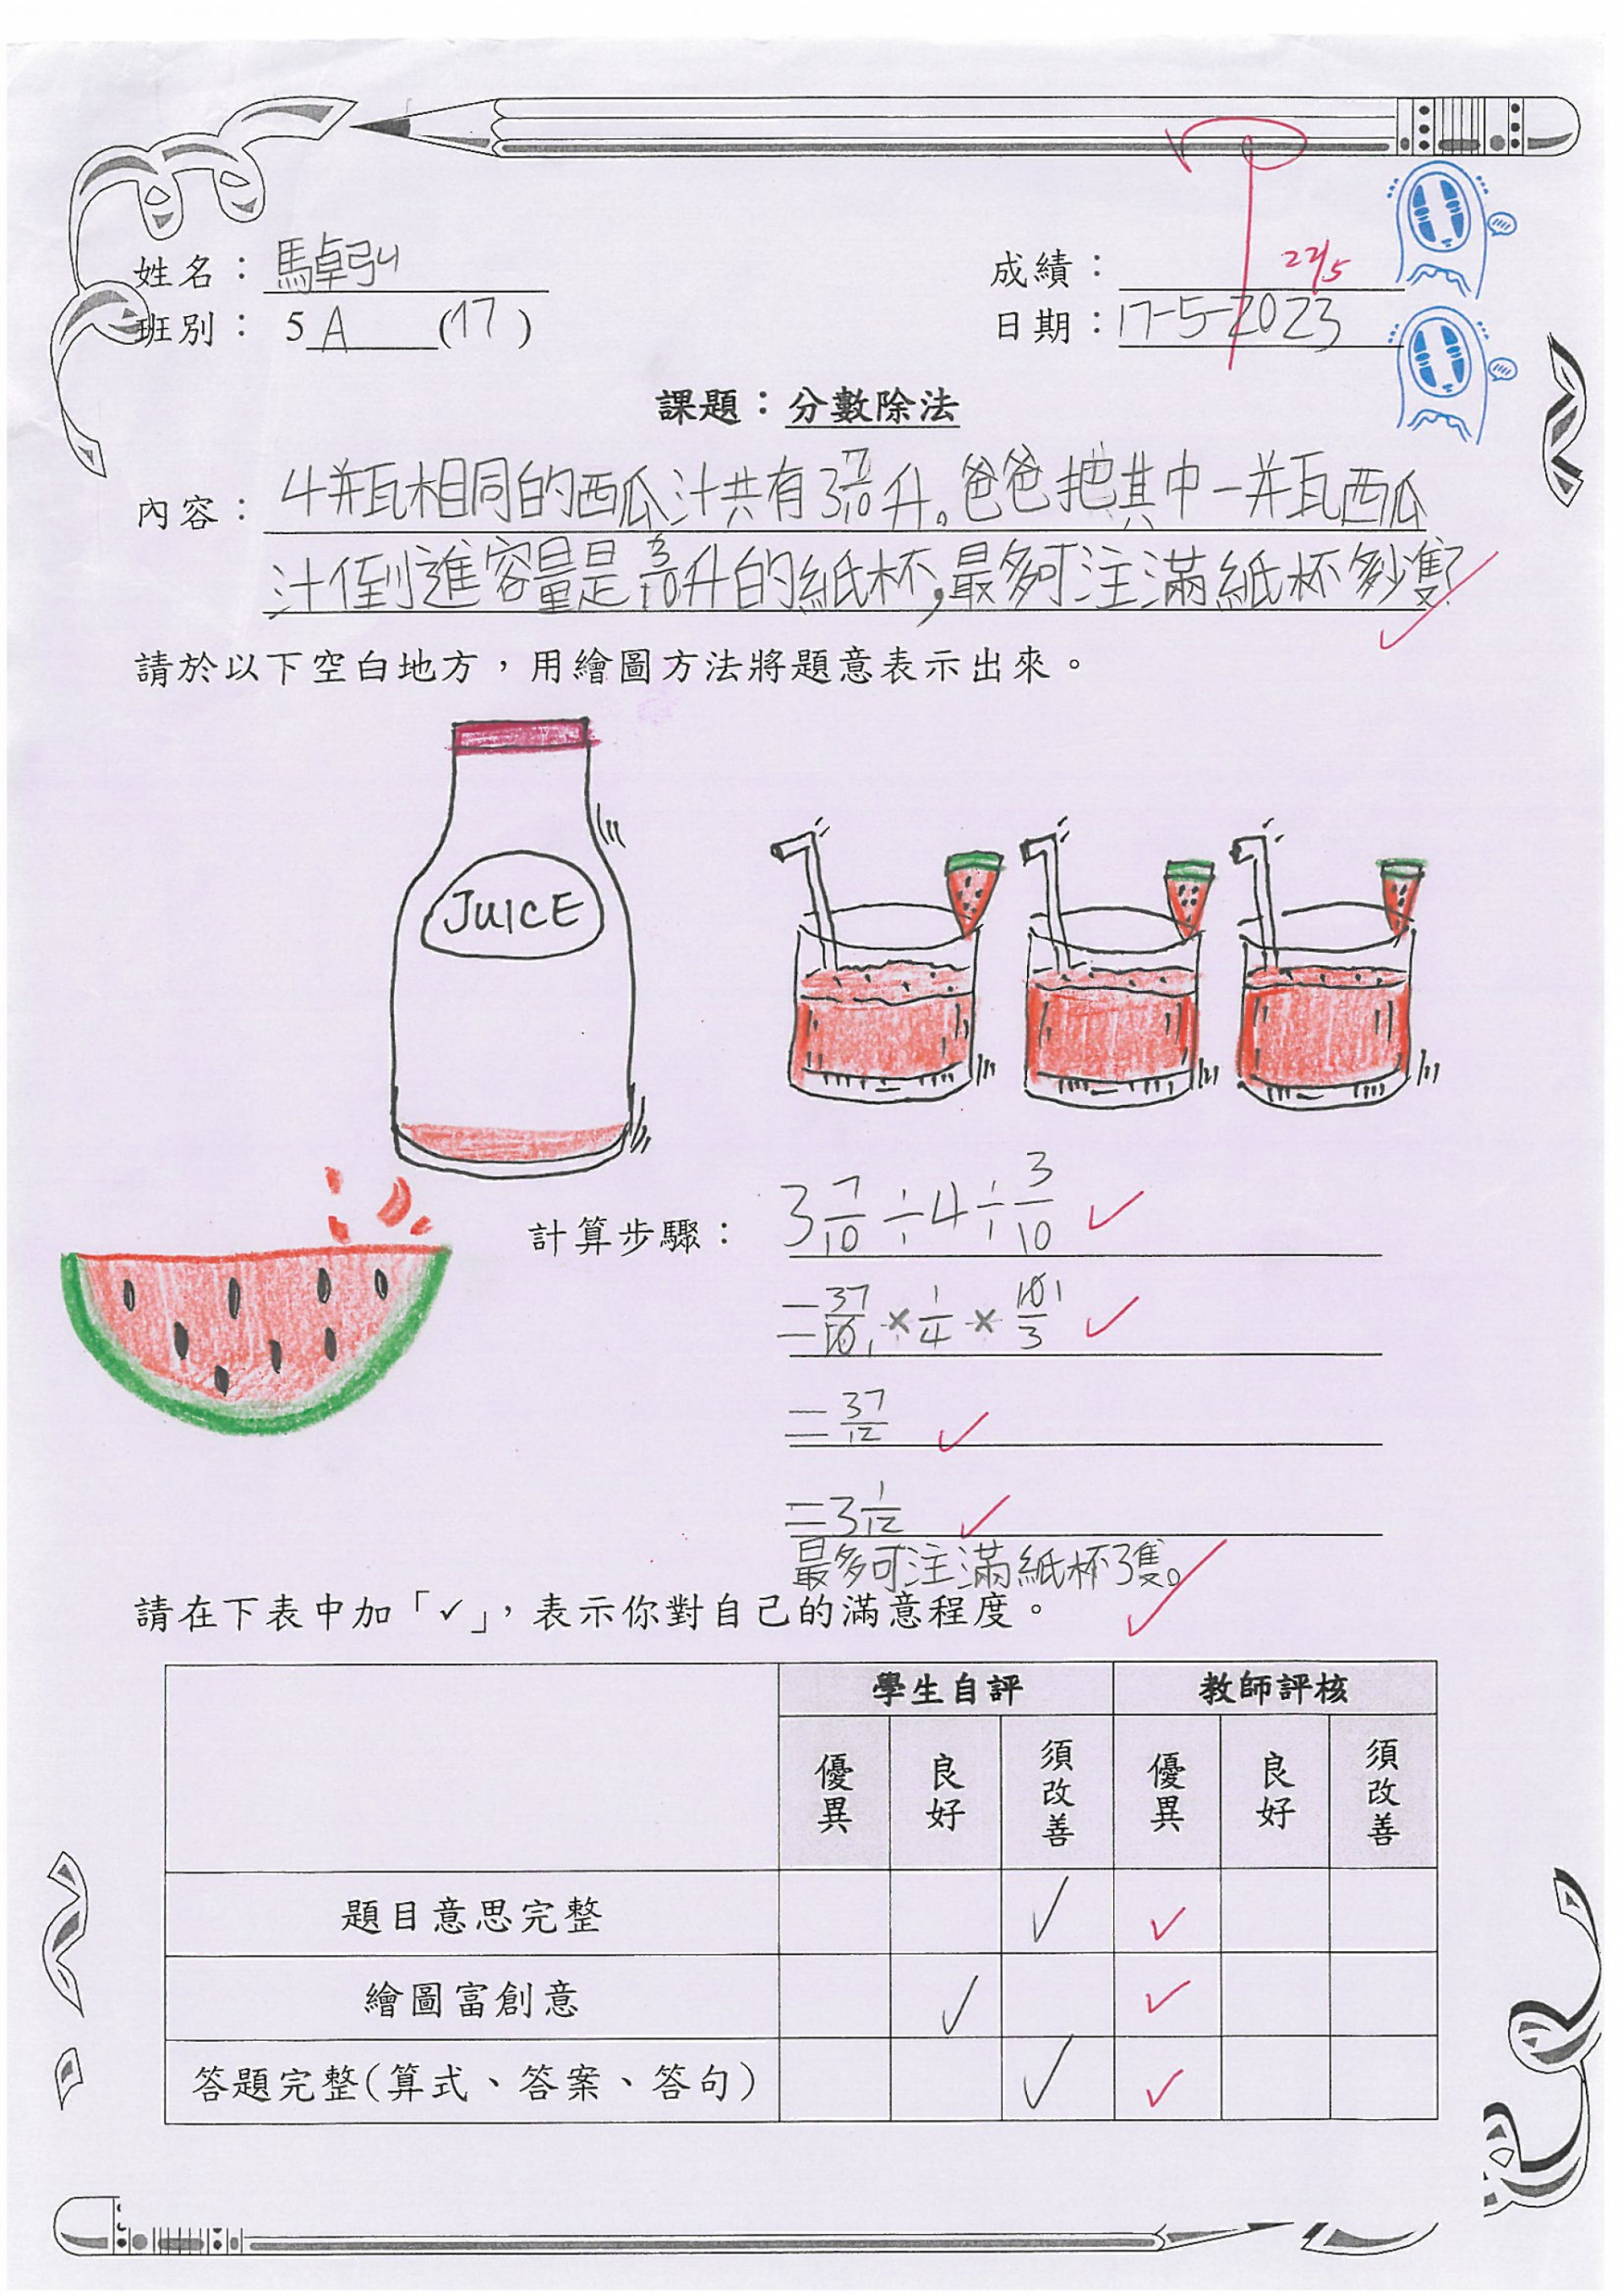 姓名： 馬卓弘
成績：
22/5
班別： 5 A (17)
日期： 17-5-2023
課題：分數除法
內容： 4瓶相同的西瓜汁共有3 7/10升。爸爸把其中一瓶西瓜
汁倒進容量是3/10升的紙杯，最多可注滿紙杯多少隻？
請於以下空白地方，用繪圖方法將題意表示出來。
JUICE
計算步驟： 3 7/10 ÷ 4 ÷ 3/10
= 37/10 1 × 1/4 × 10 1/3
= 37/12
= 3 1/12
最多可注滿紙杯3隻。
請在下表中加「✓」，表示你對自己的滿意程度。
學生自評 教師評核
優異 良好 須改善 優異 良好 須改善
題目意思完整 ✓ ✓
繪圖富創意 ✓ ✓
答題完整(算式、答案、答句) ✓ ✓